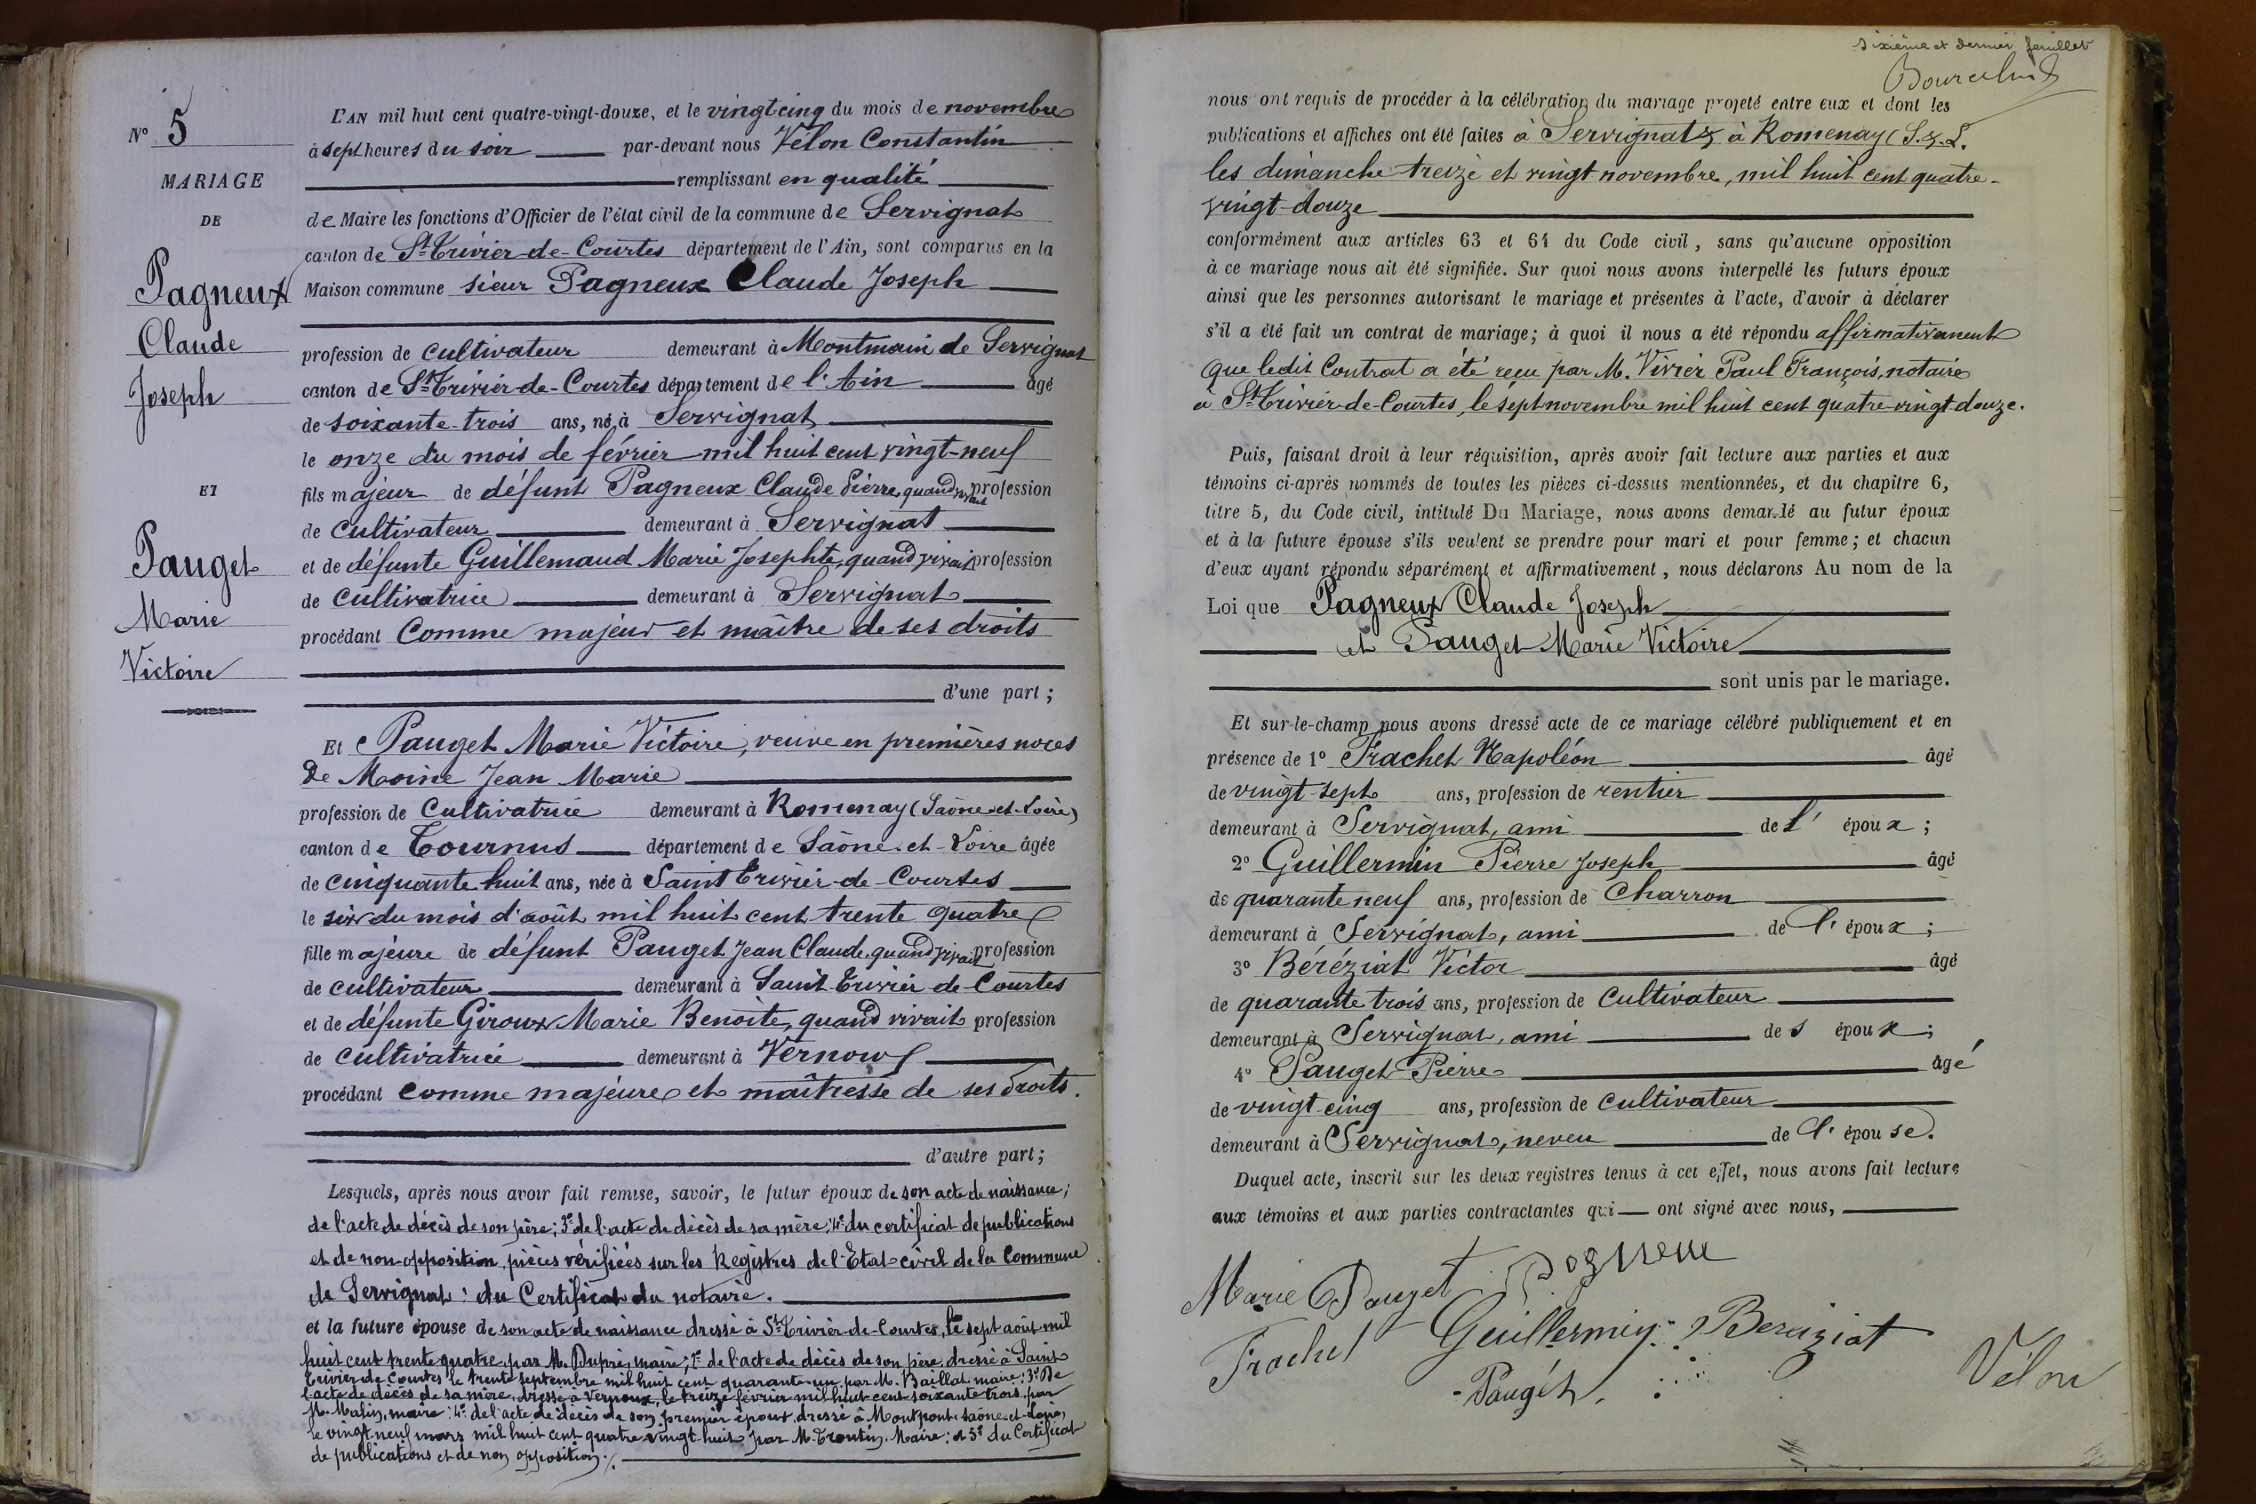 N° 5
MARIAGE
DE
Pagneux
Claude
Joseph
ET
Pauget
Marie
Victoire
L'AN mil huit cent quatre-vingt-douze, et le vingt-cinq du mois de novembre
à sept heures du soir par-devant nous Vélon Constantin
remplissant en qualité
de Maire les fonctions d'Officier de l'état civil de la commune de Servignat
canton de St-Trivier-de-Courtes département de l'Ain, sont comparus en la
Maison commune sieur Pagneux Claude Joseph
profession de cultivateur demeurant à Montmain de Servignat
canton de St-Trivier-de-Courtes département de l'Ain âgé
de soixante-trois ans, né à Servignat
le onze du mois de février mil huit cent vingt-neuf
fils majeur de défunt Pagneux Claude Pierre, quand vivait profession
de cultivateur demeurant à Servignat
et de défunte Guillemaud Marie Josephte, quand vivait profession
de cultivatrice demeurant à Servignat
procédant comme majeur et maître de ses droits
d'une part ;
Et Pauget Marie Victoire, veuve en premières noces
De Moine Jean Marie
profession de Cultivatrice demeurant à Romenay (Saône-et-Loire)
canton de Tournus département de Saône-et-Loire âgée
de cinquante-huit ans, née à Saint Trivier-de-Courtes
le six du mois d'août mil huit cent trente quatre
fille majeure de défunt Pauget Jean Claude, quand vivait profession
de cultivateur demeurant à Saint-Trivier-de-Courtes
et de défunte Giroux Marie Benoîte, quand vivait profession
de cultivatrice demeurant à Vernoux
procédant comme majeure et maîtresse de ses droits.
d'autre part ;
Lesquels, après nous avoir fait remise, savoir, le futur époux de son acte de naissance ;
de l'acte de décès de son père ; 3° de l'acte de décès de sa mère ; 4° du certificat de publications
et de non-opposition, pièces vérifiées sur les Registres de l'Etat-civil de la Commune
de Servignat ; du Certificat du notaire.
et la future épouse de son acte de naissance dressé à St-Trivier-de-Courtes, le sept août mil
huit cent trente quatre, par M. Dupré, maire ; 2° de l'acte de décès de son père dressé à Saint
Trivier-de-Courtes le trente septembre mil huit cent quarante-un par M. Baillat, maire ; 3° De
l'acte de décès de sa mère, dressé à Vernoux, le treize février mil huit cent soixante trois, par
M. Malin, maire ; 4° de l'acte de décès de son premier époux dressé à Montpont, Saône-et-Loire,
le vingt-neuf mars mil huit cent quatre vingt-huit par M. Troutin, Maire ; et 5° du Certificat
de publications et de non opposition ./.
Sixième et dernier feuillet
nous ont requis de procéder à la célébration du mariage projeté entre eux et dont les
publications et affiches ont été faites à Servignat & à Romenay (S.&.L.
les dimanche treize et vingt novembre, mil huit cent quatre-
vingt-douze
conformément aux articles 63 et 64 du Code civil, sans qu'aucune opposition
à ce mariage nous ait été signifiée. Sur quoi nous avons interpellé les futurs époux
ainsi que les personnes autorisant le mariage et présentes à l'acte, d'avoir à déclarer
s'il a été fait un contrat de mariage ; à quoi il nous a été répondu affirmativement
que ledit Contrat a été reçu par M. Vivier Paul François, notaire
à St-Trivier-de-Courtes, le sept novembre mil huit cent quatre-vingt-douze.
Puis, faisant droit à leur réquisition, après avoir fait lecture aux parties et aux
témoins ci-après nommés de toutes les pièces ci-dessus mentionnées, et du chapitre 6,
titre 5, du Code civil, intitulé Du Mariage, nous avons demandé au futur époux
et à la future épouse s'ils veulent se prendre pour mari et pour femme ; et chacun
d'eux ayant répondu séparément et affirmativement, nous déclarons Au nom de la
Loi que Pagneux Claude Joseph
et Pauget Marie Victoire
sont unis par le mariage.
Et sur-le-champ nous avons dressé acte de ce mariage célébré publiquement et en
présence de 1° Frachet Napoléon âgé
de vingt-sept ans, profession de rentier
demeurant à Servignat, ami de l' époux ;
2° Guillermin Pierre Joseph âgé
de quarante neuf ans, profession de Charron
demeurant à Servignat, ami de l' époux ;
3° Béréziat Victor âgé
de quarante trois ans, profession de Cultivateur
demeurant à Servignat, ami des époux ;
4° Pauget Pierre âgé
de vingt-cinq ans, profession de cultivateur
demeurant à Servignat, neveu de l' épouse.
Duquel acte, inscrit sur les deux registres tenus à cet effet, nous avons fait lecture
aux témoins et aux parties contractantes qui ont signé avec nous,
Marie Pauget Pagneux
Frachet Guillermin Bereziat
Pauget Vélon